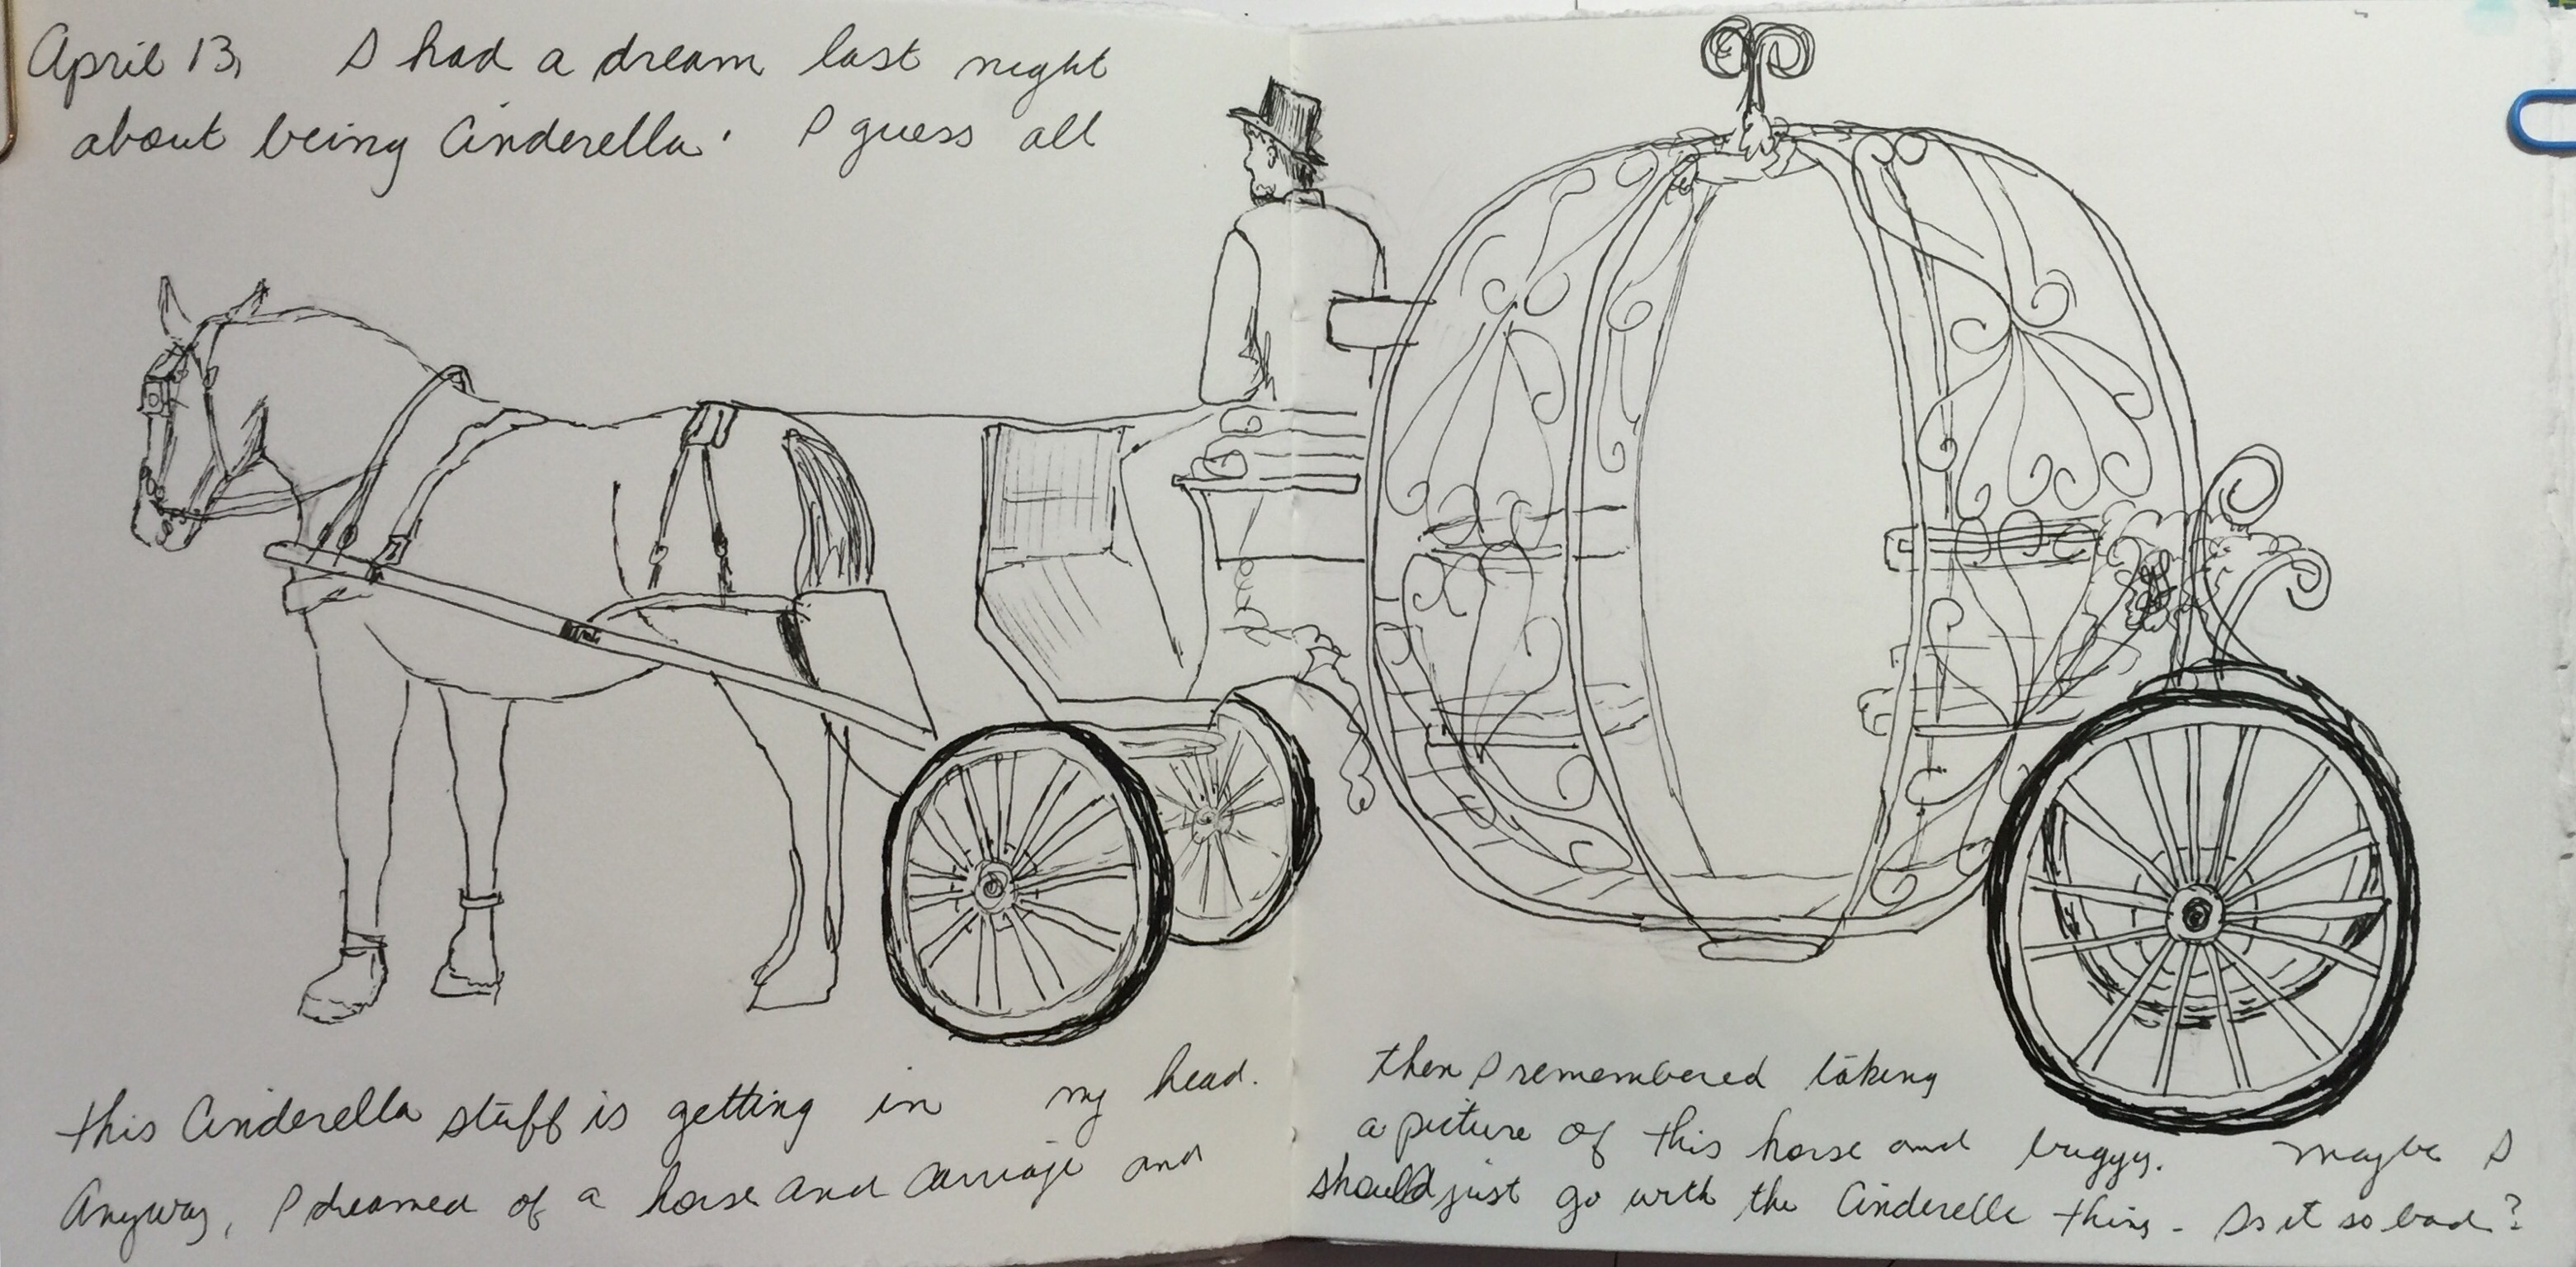 April 13, I had a dream last night
about being Cinderella. I guess all
this Cinderella stuff is getting in my head.
Anyway, I dreamed of a horse and carriage and
then I remembered taking
a picture of this horse and buggy. Maybe I
should just go with the Cinderella thing - Is it so bad?